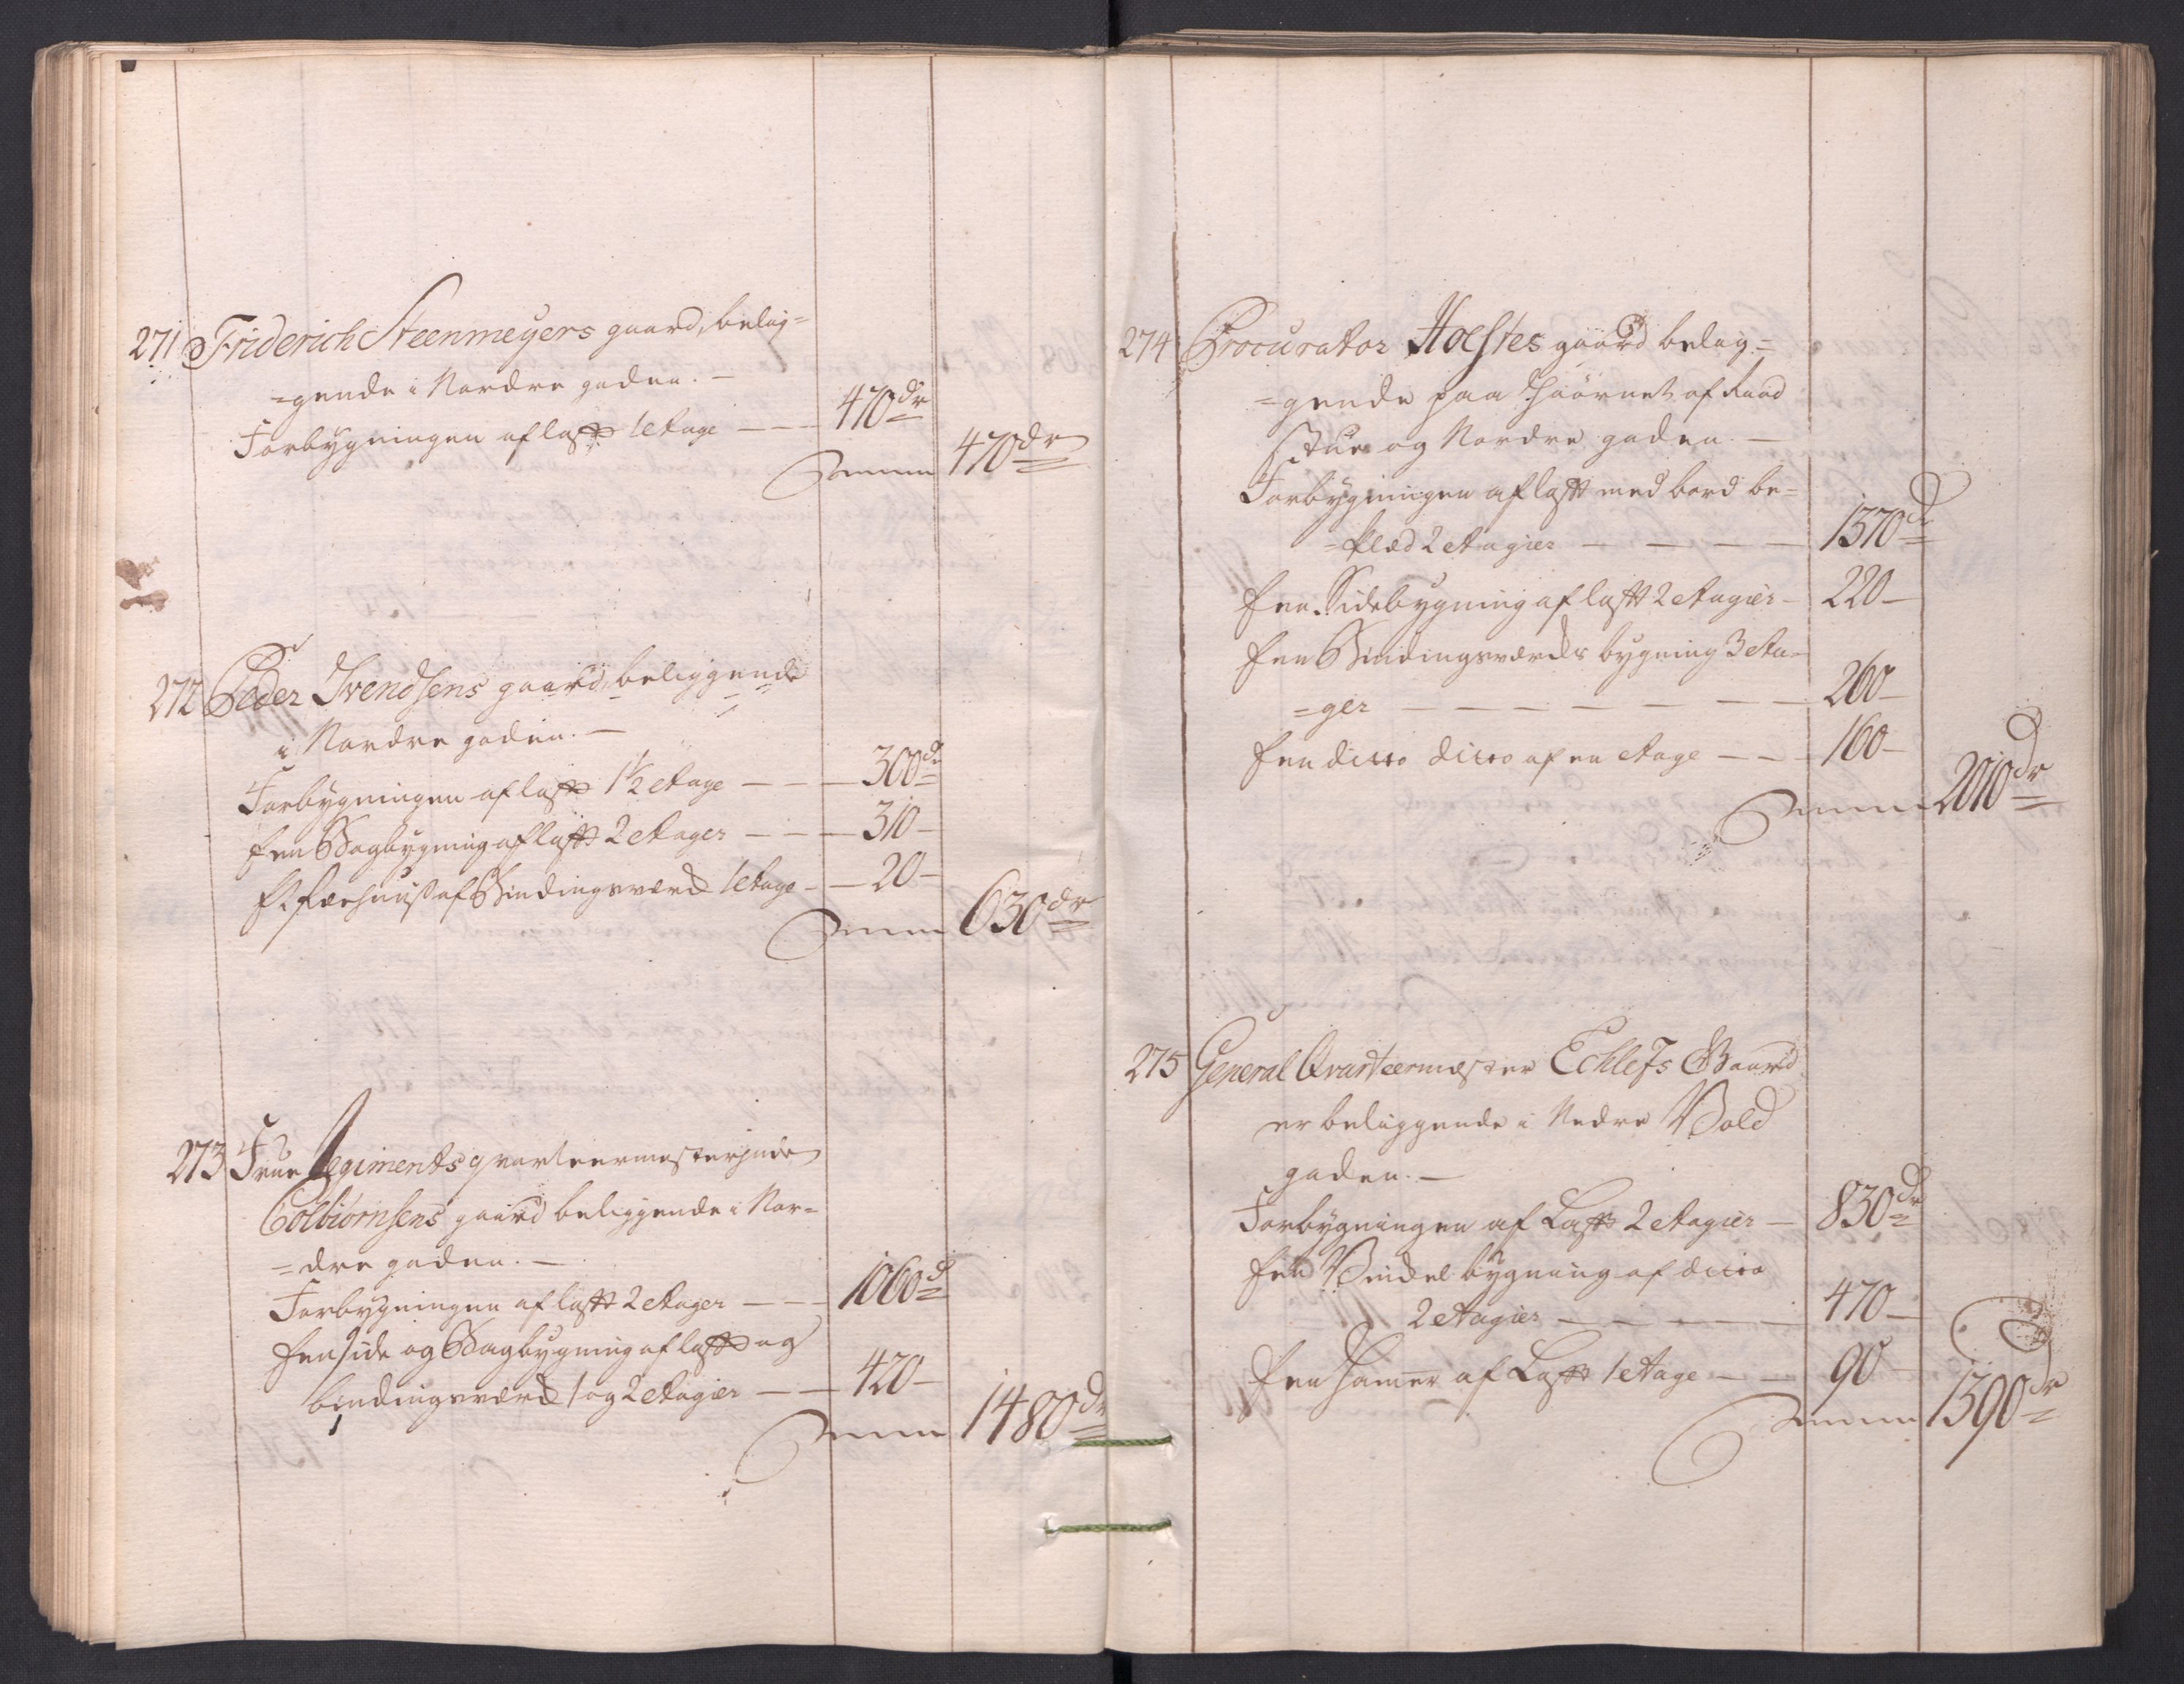 271 Friderich Steenmeyers gaard, belig=
=gende i Nordre gaden. —
Forbygningen af laft 1 Etage — — — 470 dr
Summa 470 dr
272 Peder Svendsens gaard, beliggende
i Nordre gaden. —
Forbygningen af laft 1½ Etage — — — 300 dr
Een Bagbygning af laft 2 Etager — — — 310 —
Et Fæehuus af Bindingsværk 1 Etage — — 20 —
Summa 630 dr
273 Frue Regiments qvarteermesterinde
Colbiørnsens gaard beliggende i Nor=
=dre gaden. —
Forbygningen af laft 2 Etager — — — 1060 dr
Een side og Bagbygning af laft og
bindingsværk 1 og 2 Etagier — — 420 —
Summa 1480 dr
274 Procurator Hoestes gaard belig=
=gende paa Hiørnet af Raad
stue og Nordre gaden. —
Forbygningen af laft med bord be=
=klæd 2 Etagier — — — — 1370 dr
Een Sidebygning af laft 2 Etagier — 220 —
Een Bindingsværks bygning 3 Eta=
=ger — — — — — — — 260 —
Een ditto ditto af en Etage — — — 160 —
Summa 2010 dr
275 General Qvarteermester Echlefs Gaard
er beliggende i Nedre Vold
gaden. —
Forbygningen af Laft 2 Etagier — 830 dr
Een Vindel bygning af ditto
2 Etagier — — — — — 470 —
Een Hamer af Laft 1 Etage — — 90
Summa 1390 dr